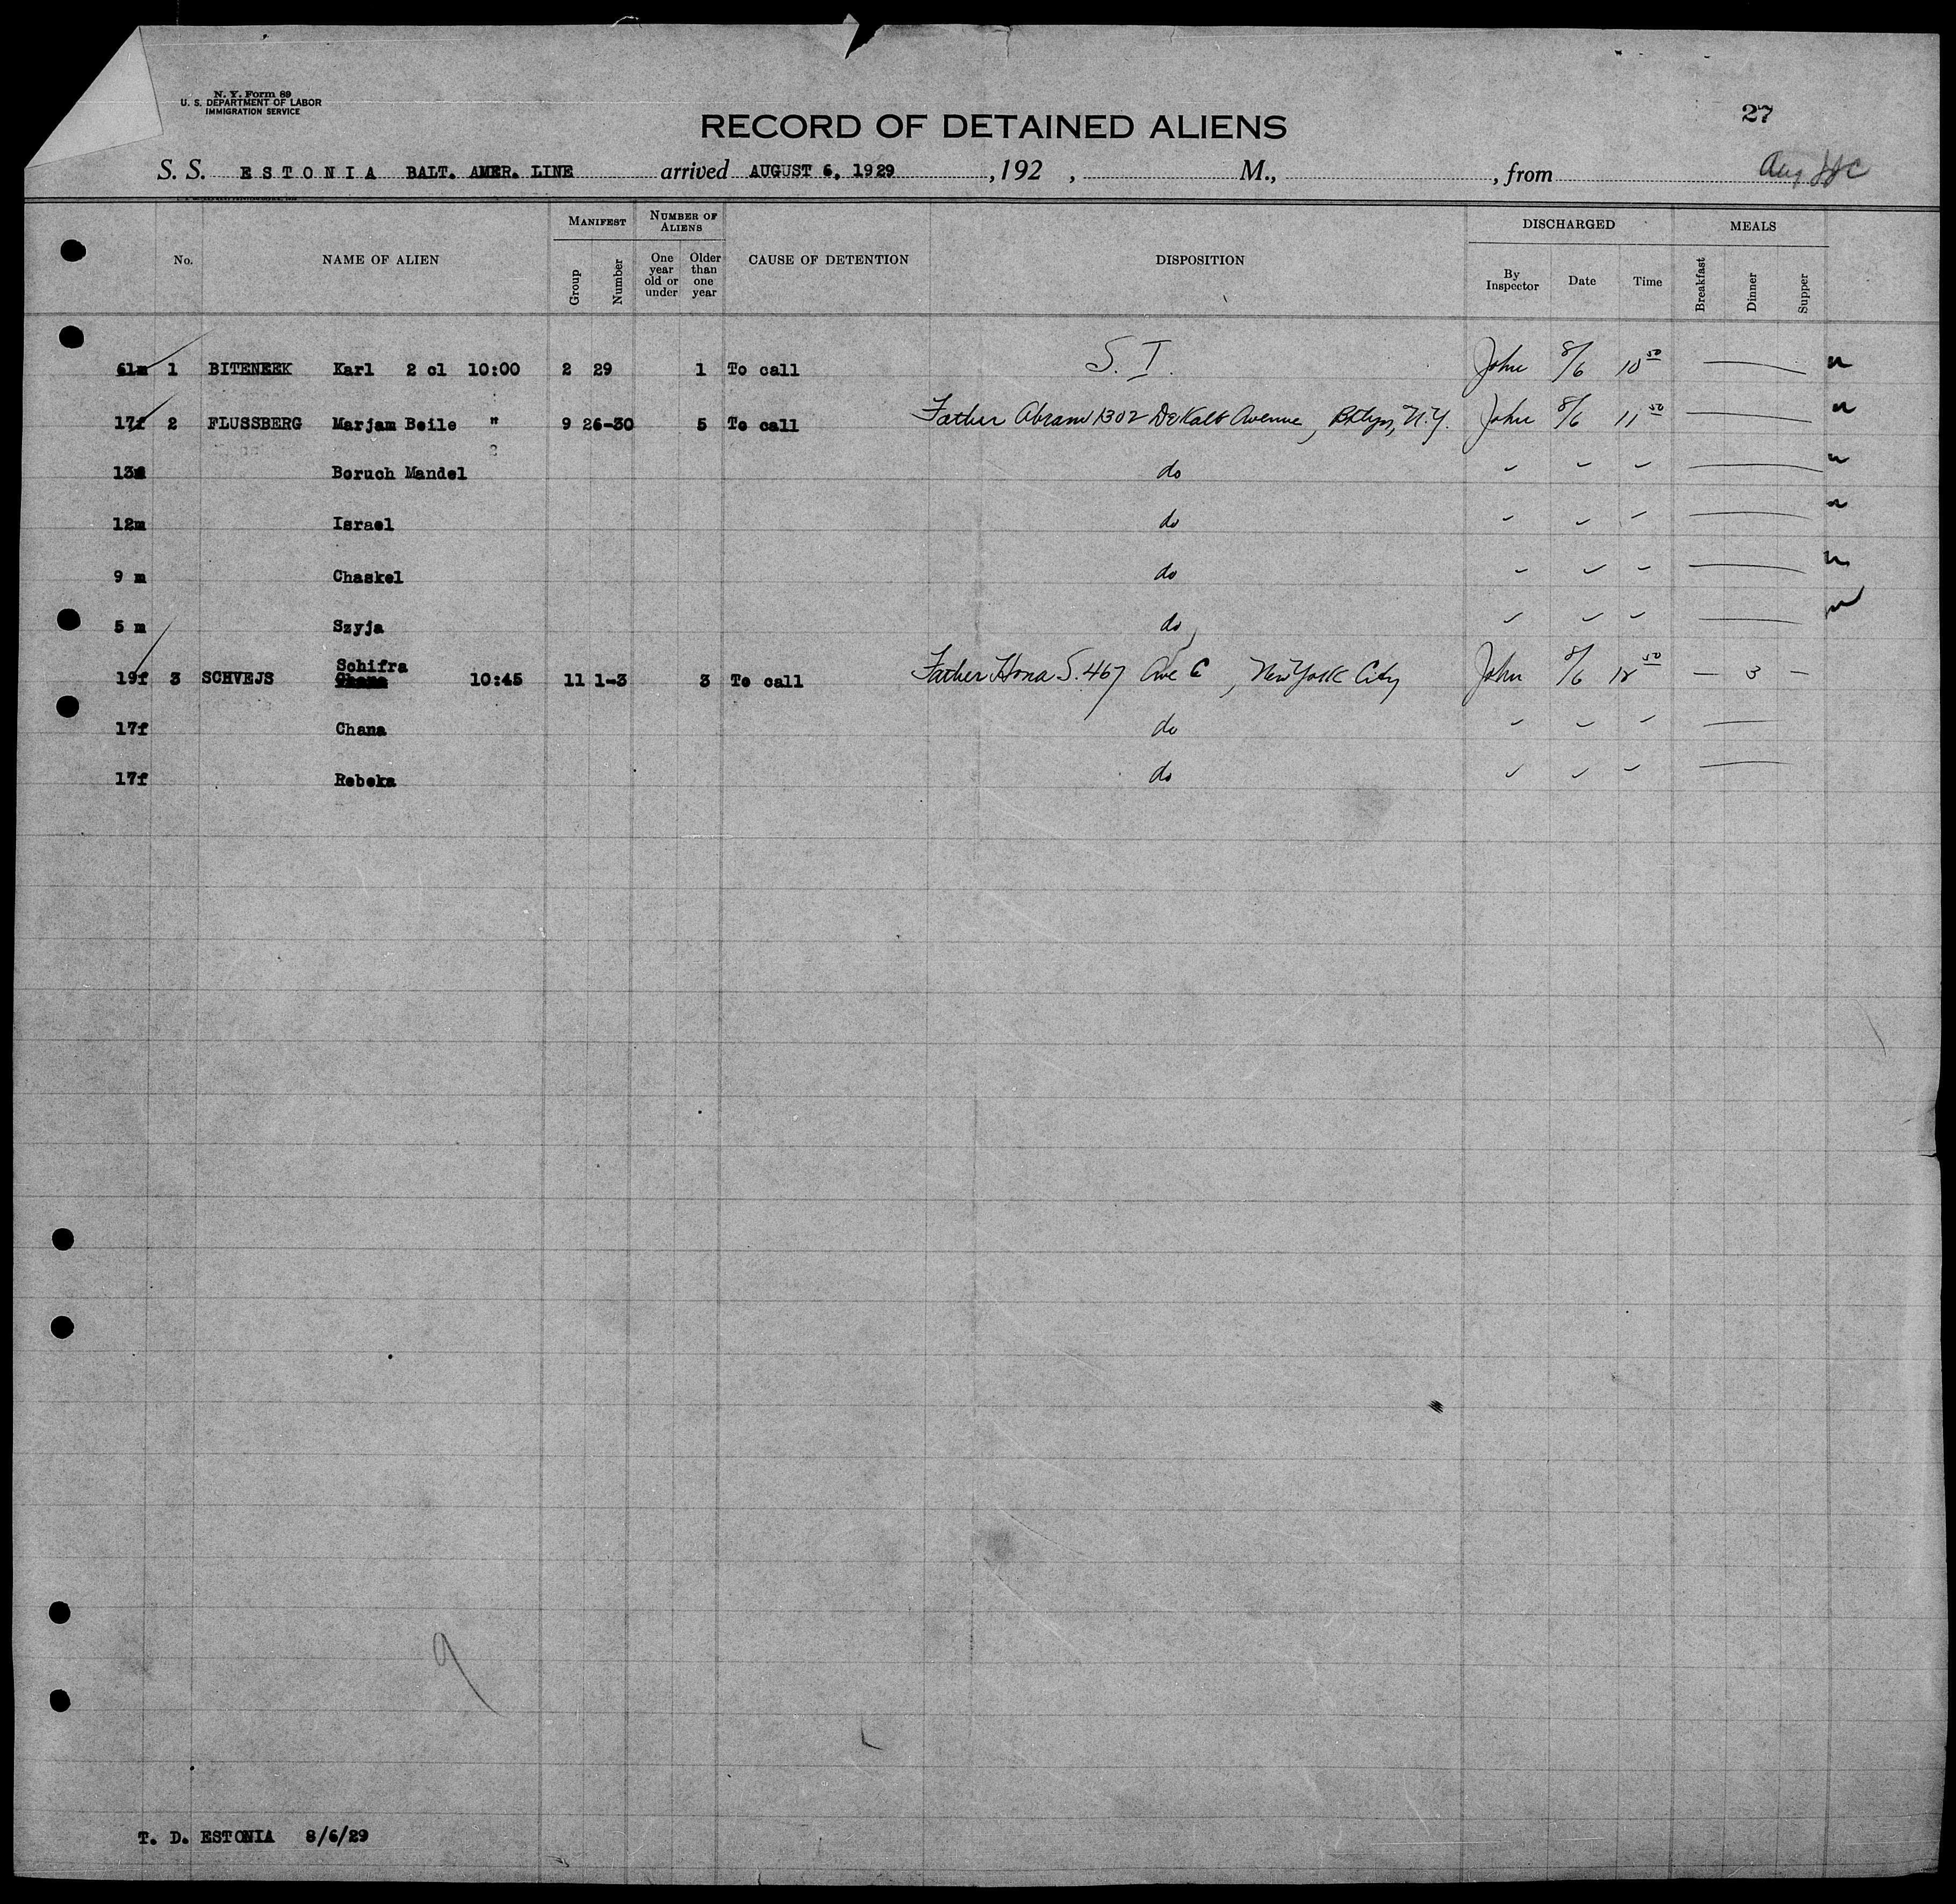 N. Y. Form 89
U. S. DEPARTMENT OF LABOR
IMMIGRATION SERVICE
27
RECORD OF DETAINED ALIENS
S. S. ESTONIA BALT. AMER. LINE arrived AUGUST 6, 1929, 192 , M., , from
Aug
MANIFEST NUMBER OF ALIENS DISCHARGED MEALS
No. NAME OF ALIEN Group Number One year old or under Older than one year CAUSE OF DETENTION DISPOSITION By Inspector Date Time Breakfast Dinner Supper
61m 1 BITENEEK Karl 2 cl 10:00 2 29 1 To call S. I. John 8/6 10 50
17f 2 FLUSSBERG Marjam Beile " 9 26-30 5 To call Father Abram 1302 DeKalb Avenue, Bklyn, N.Y. John 8/6 11 50
13m Boruch Mandel do
12m Israel do
9 m Chaskel do
5 m Szyja do
19f 3 SCHVEJS Schifra Chana 10:45 11 1-3 3 To call Father Hona S. 467 Ave C, New York City John 8/6 12 50 – 3 –
17f Chana do
17f Rebeka do
9
T. D. ESTONIA 8/6/29